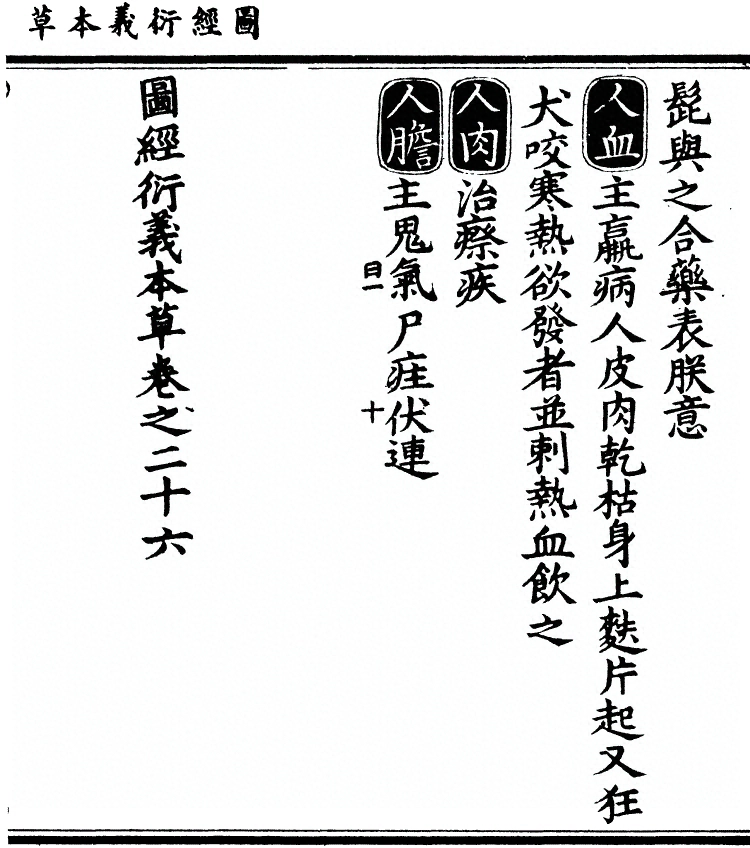 圖經衍義本草
髭與之合藥表朕意
人血主羸病人皮肉乾枯身上麩片起又狂
犬咬寒熱欲發者並刺熱血飲之
人肉治瘵疾
人膽主鬼氣尸疰伏連
曰一
十
圖經衍義本草卷之二十六